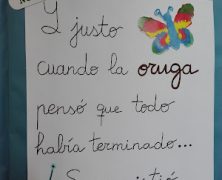 Y justo
cuando la oruga
pensó que todo
había terminado...
¡Se convirtió